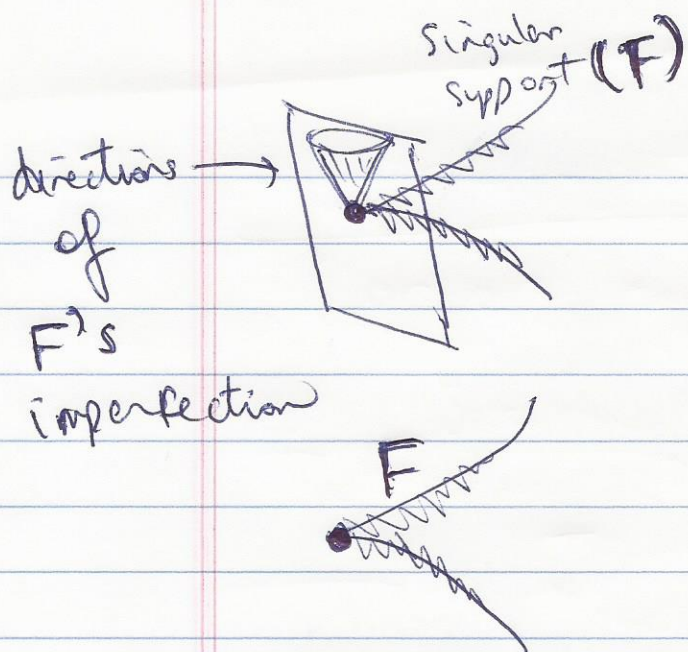 singular
support (F)
directions
of
F's
imperfection
F